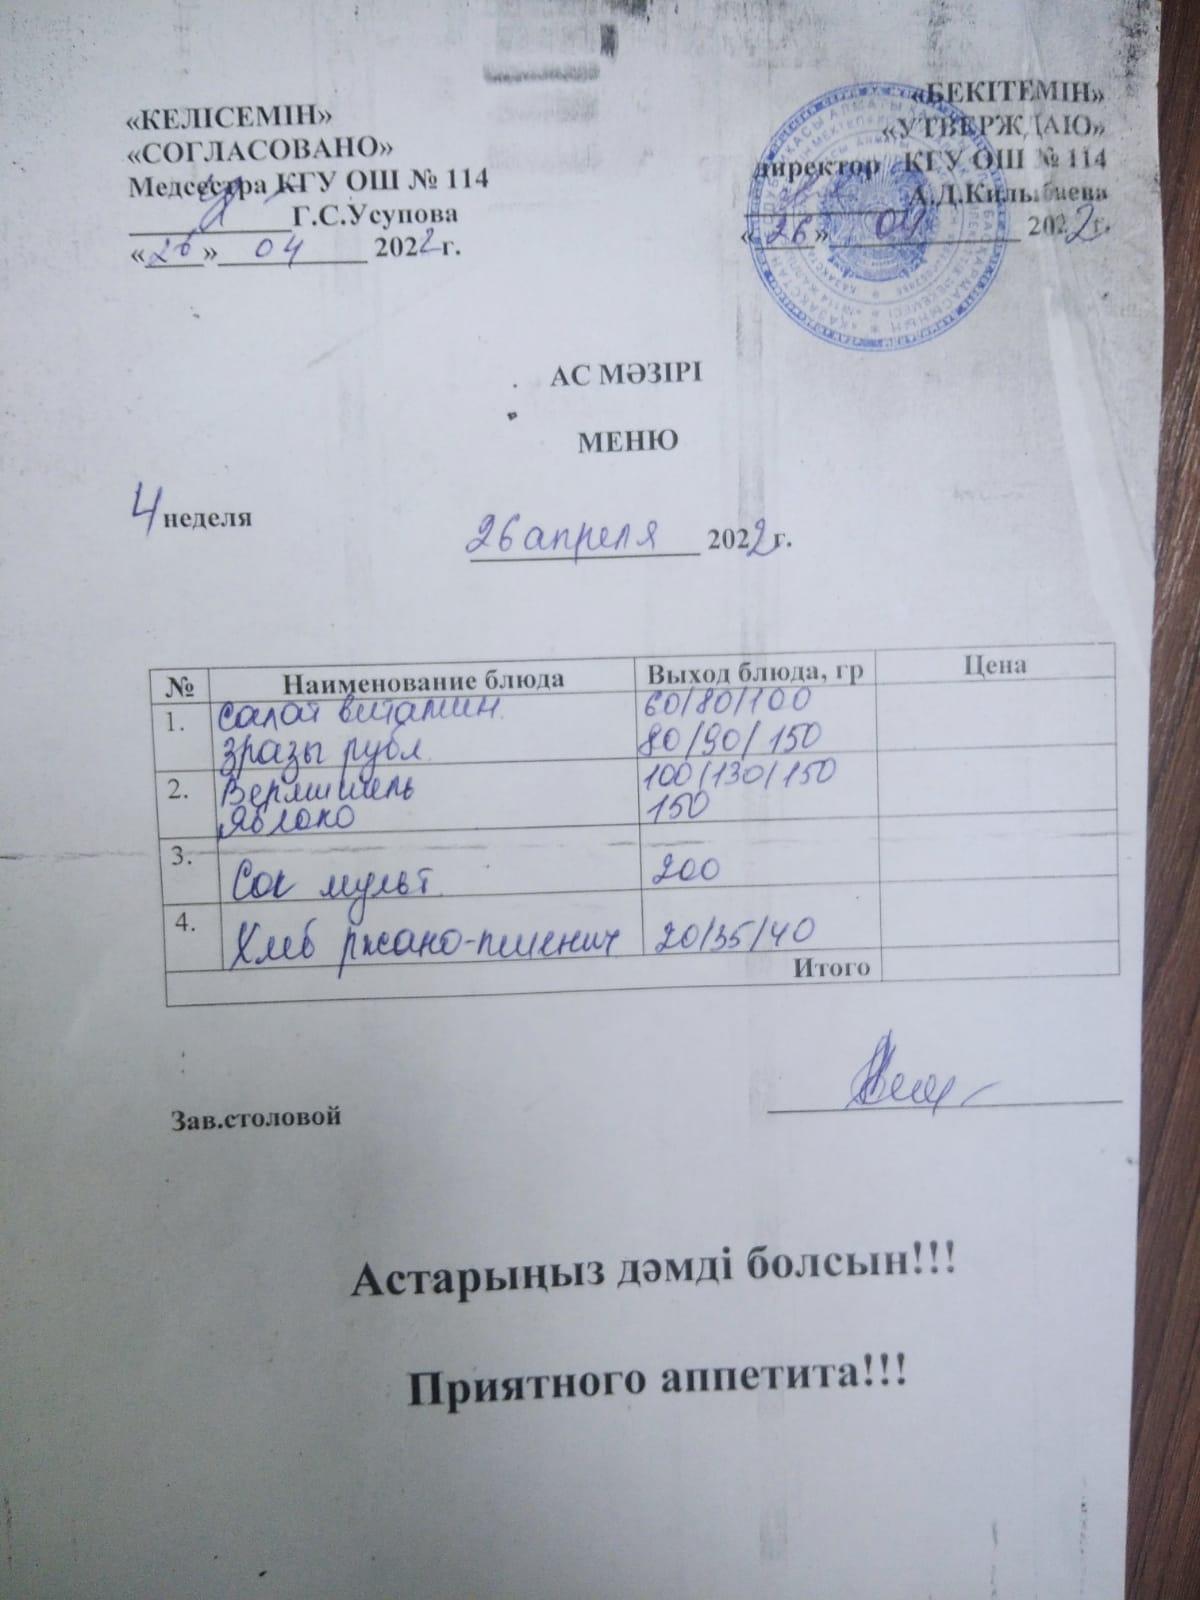 «КЕЛІСЕМІН»
«СОГЛАСОВАНО»
Медсестра КГУ ОШ № 114
Г.С.Усупова
«26» 04 2022 г.
«БЕКІТЕМІН»
«УТВЕРЖДАЮ»
директор КГУ ОШ № 114
А.Д.Килыбаева
«26» 04 2022 г.
АС МӘЗІРІ
МЕНЮ
4 неделя
26 апреля 2022 г.
№ Наименование блюда Выход блюда, гр Цена
1. Салат витамин. 60/80/100
зразы рубл. 80/90/150
2. Вермишель 100/130/150
Яблоко 150
3. Сок мульт. 200
4. Хлеб ржано-пшенич 20/35/40
Итого
Зав.столовой
Астарыңыз дәмді болсын!!!
Приятного аппетита!!!